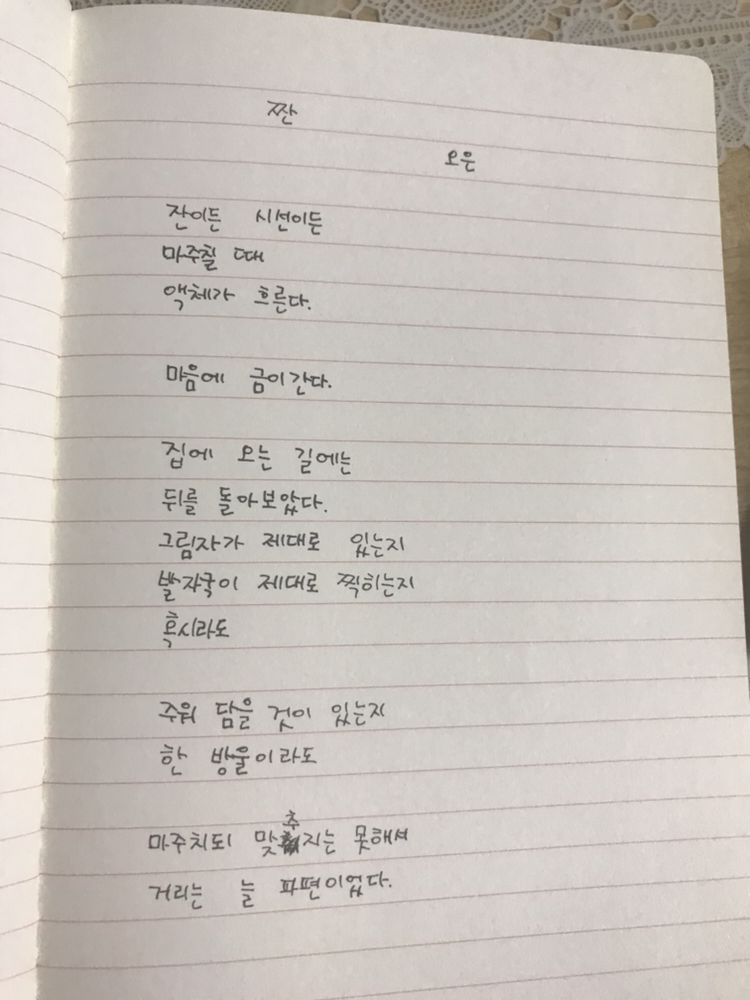 짠
오은
잔이든 시선이든
마주칠 때
액체가 흐른다.
마음에 금이 간다.
집에 오는 길에는
뒤를 돌아보았다.
그림자가 제대로 있는지
발자국이 제대로 찍히는지
혹시라도
주워 담을 것이 있는지
한 방울이라도
마주치되 맞추지는 못해서
거리는 늘 파편이었다.